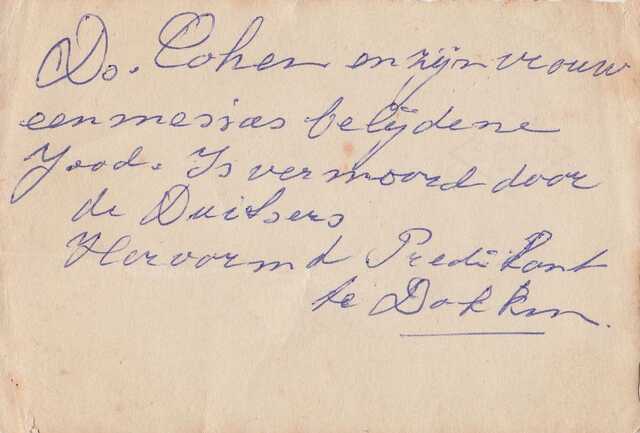 Ds. Cohen en zijn vrouw
een mesias belijdene
Jood. Is vermoord door
de Duitsers
Hervormd Predikant
te Dokkm.